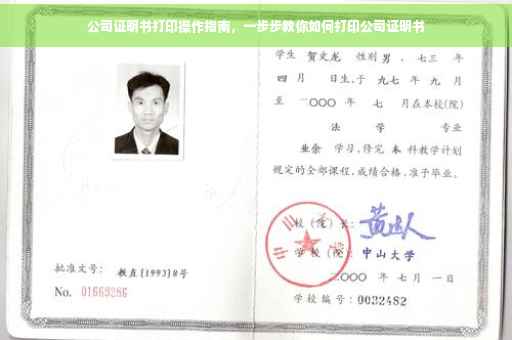 公司证明书打印操作指南，一步步教你如何打印公司证明书
学生 贺文龙 性别 男 、七三 年
四 月 日生，于 九七 年 九 月
至 二〇〇〇 年 七 月在本校(院)
法 学 专业
业余 学习，修完 本 科教学计划
规定的全部课程，成绩合格，准予毕业。
校 (院) 长：
学 校 (院)： 中山大学
二〇〇〇 年 七 月 一 日
学校编号：0032482
批准文号： 教直[1993]8号
No. 01669286